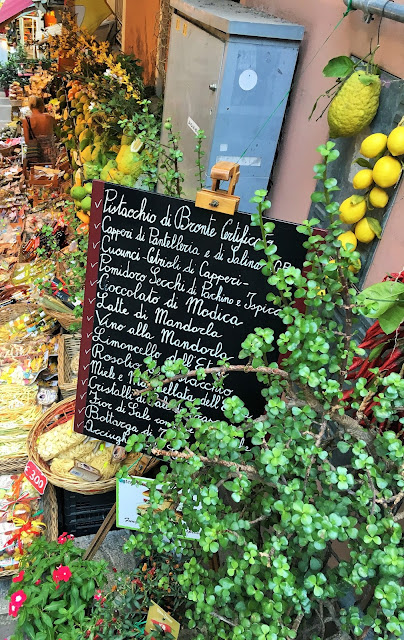 Pistacchio di Bronte Certificato
Capperi di Pantelleria e di Salina
Cucunci-Cetrioli di Capperi-
Pomidoro Secchi di Pachino e Ispica
Cioccolato di Modica
Latte di Mandorla
Vino alla Mandorla
Limoncello dell'Et
Rosolio di acchio
Miele e Marmellata dell'E
Cristalli di Sale di
Fior di Sale
Bottarga di T
Acciughe
3,00
3,00